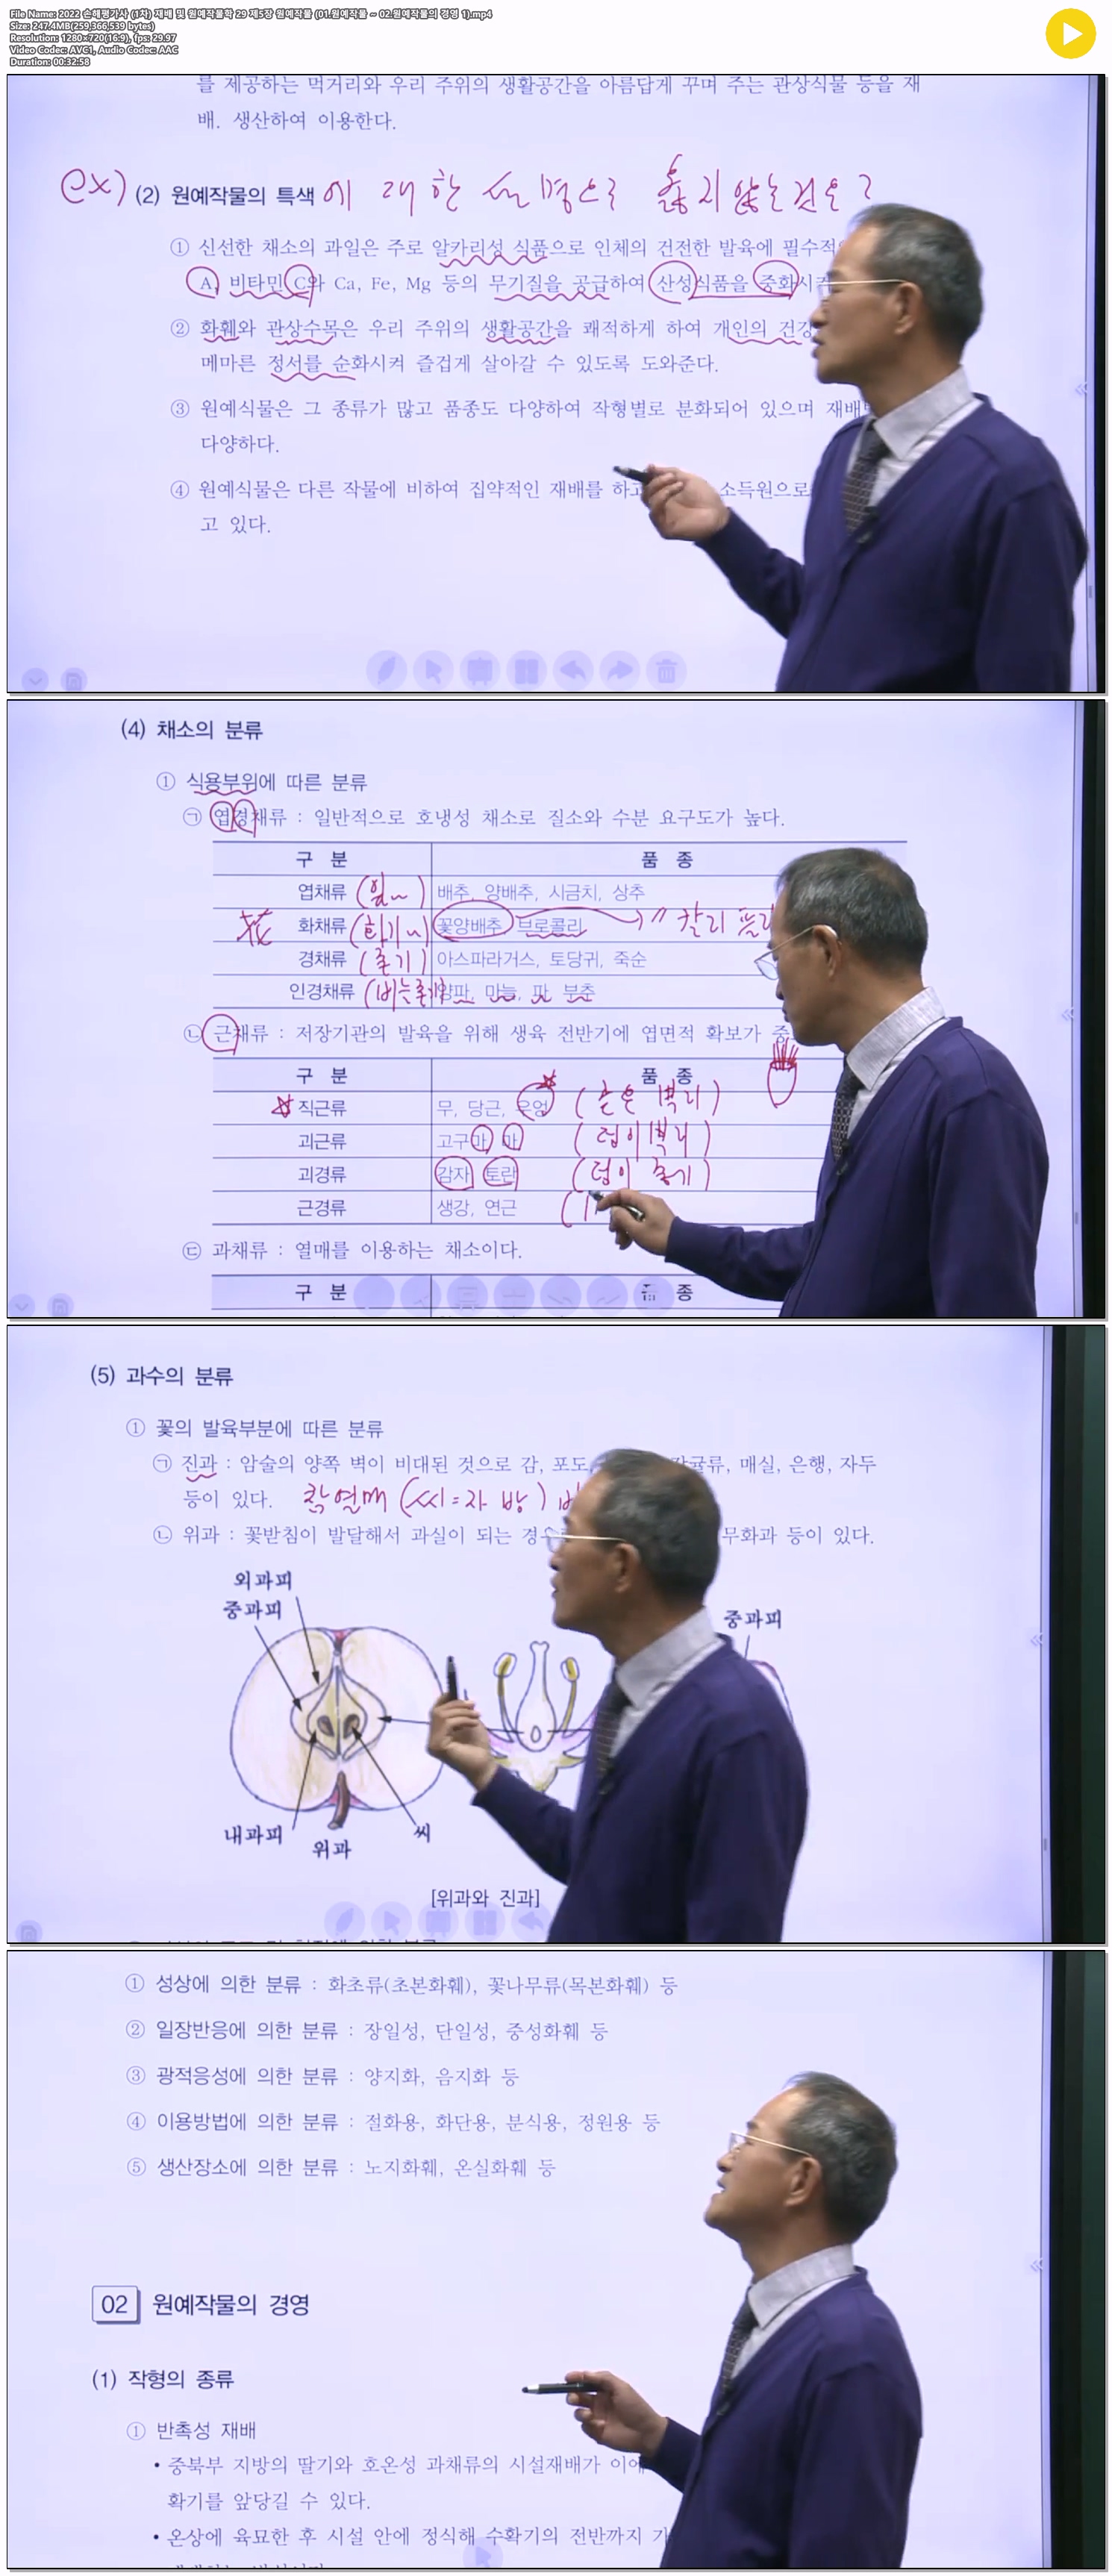 File Name: 2022 손해평가사 (1차) 재배 및 원예작물학 29 제5장 원예작물 (01.원예작물 ~ 02.원예작물의 경영 1).mp4
Size: 247.4MB(259,366,539 bytes)
Resolution: 1280x720(16:9), fps: 29.97
Video Codec: AVC1, Audio Codec: AAC
Duration: 00:32:58
를 제공하는 먹거리와 우리 주위의 생활공간을 아름답게 꾸며 주는 관상식물 등을 재
배. 생산하여 이용한다.
ex) (2) 원예작물의 특색에 대한 설명으로 옳지 않는 것은?
① 신선한 채소의 과일은 주로 알카리성 식품으로 인체의 건전한 발육에 필수적
A, 비타민 C와 Ca, Fe, Mg 등의 무기질을 공급하여 산성식품을 중화시
② 화훼와 관상수목은 우리 주위의 생활공간을 쾌적하게 하여 개인의 건강
메마른 정서를 순화시켜 즐겁게 살아갈 수 있도록 도와준다.
③ 원예식물은 그 종류가 많고 품종도 다양하여 작형별로 분화되어 있으며 재배
다양하다.
④ 원예식물은 다른 작물에 비하여 집약적인 재배를 하고 소득원으로
고 있다.
(4) 채소의 분류
① 식용부위에 따른 분류
㉠ 엽경채류 : 일반적으로 호냉성 채소로 질소와 수분 요구도가 높다.
구 분 품 종
엽채류 (잎~) 배추, 양배추, 시금치, 상추
花 화채류 꽃양배추 브로콜리 → 〃 칼리
경채류 (줄기) 아스파라거스, 토당귀, 죽순
인경채류 (비늘줄기) 양파, 마늘, 파, 부추
㉡ 근채류 : 저장기관의 발육을 위해 생육 전반기에 엽면적 확보가 중
구 분 품 종
직근류 무, 당근, 우엉 (곧은 뿌리)
괴근류 고구마, 마 (덩이뿌리)
괴경류 감자, 토란 (덩이 줄기)
근경류 생강, 연근
㉢ 과채류 : 열매를 이용하는 채소이다.
구 분 품 종
(5) 과수의 분류
① 꽃의 발육부분에 따른 분류
㉠ 진과 : 암술의 양쪽 벽이 비대된 것으로 감, 포도, 감귤류, 매실, 은행, 자두
등이 있다. 참열매 (씨=자방) 비
㉡ 위과 : 꽃받침이 발달해서 과실이 되는 경우 무화과 등이 있다.
외과피
중과피
중과피
내과피
씨
위과
[위과와 진과]
① 성상에 의한 분류 : 화초류(초본화훼), 꽃나무류(목본화훼) 등
② 일장반응에 의한 분류 : 장일성, 단일성, 중성화훼 등
③ 광적응성에 의한 분류 : 양지화, 음지화 등
④ 이용방법에 의한 분류 : 절화용, 화단용, 분식용, 정원용 등
⑤ 생산장소에 의한 분류 : 노지화훼, 온실화훼 등
02 원예작물의 경영
(1) 작형의 종류
① 반촉성 재배
• 중북부 지방의 딸기와 호온성 과채류의 시설재배가 이에
확기를 앞당길 수 있다.
• 온상에 육묘한 후 시설 안에 정식해 수확기의 전반까지 기